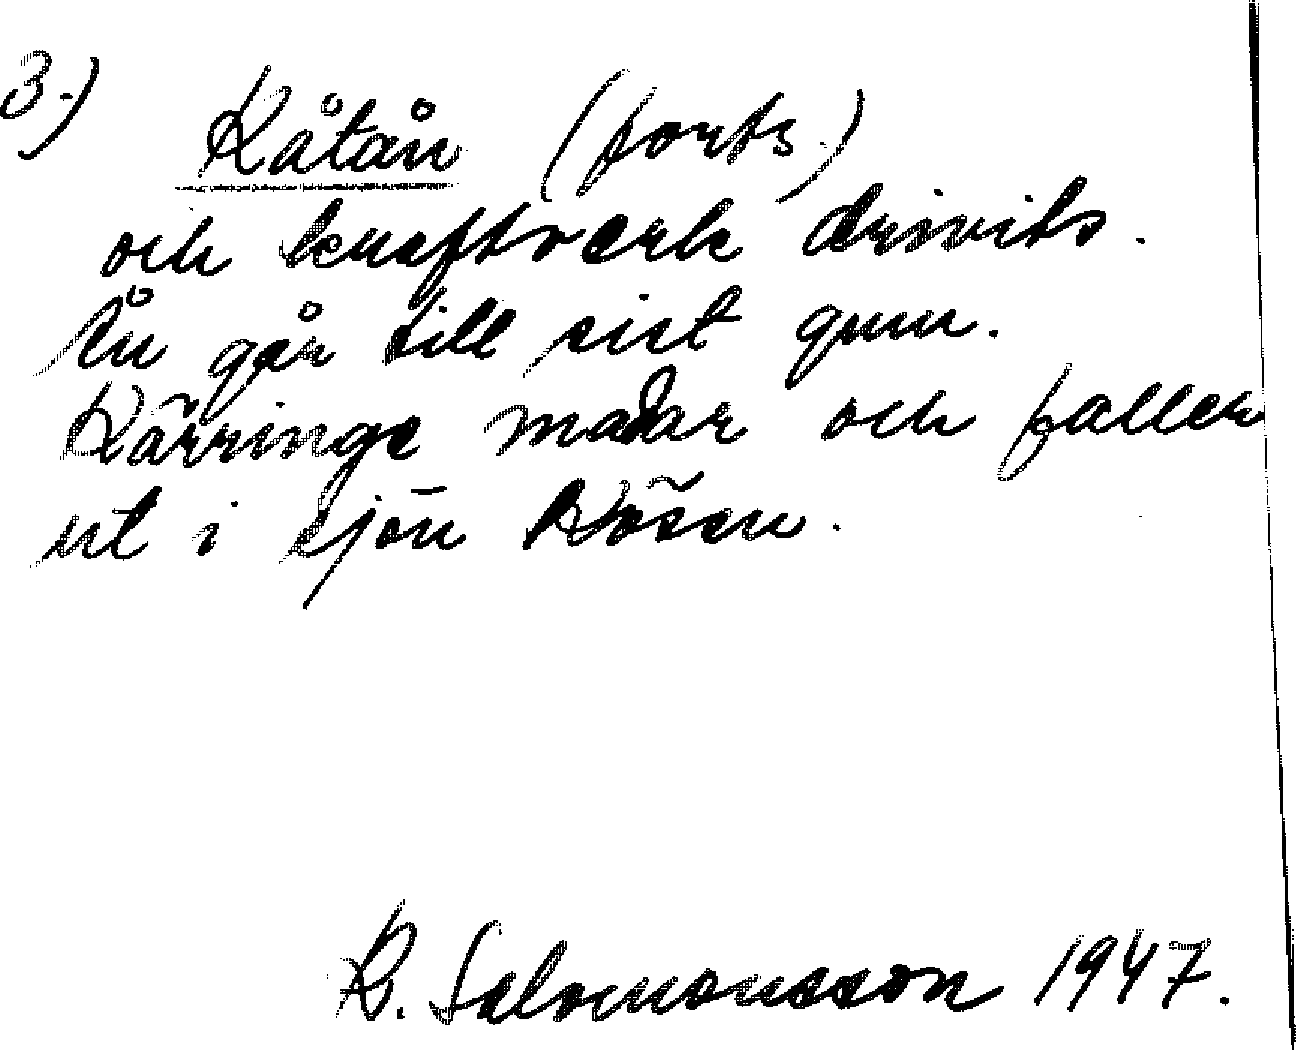 3.)
Kåtån (forts.)
och kraftverk drivits.
Ån går till sist gnm.
Kärringe madar och faller
ut i sjön Kösen.
R. Salomonsson 1947.